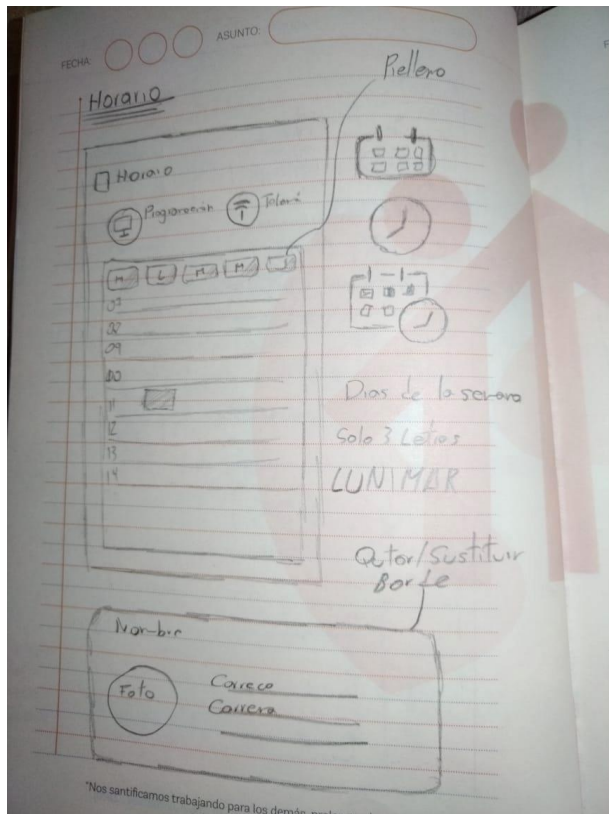 FECHA:
ASUNTO:
Horario
Rellero
Horario
Programación
M L M M J
09
10
11
12
13
14
Dias de la semana
Solo 3 Letras
LUN|MAR
Quitar/Sustituir
Borde
Nombre
Foto
Correo
Carrera
"Nos santificamos trabajando para los demás,